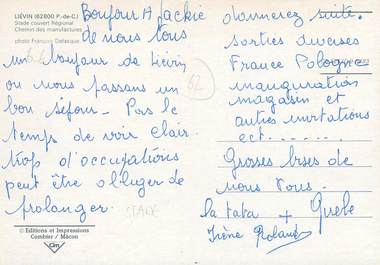 LIÉVIN (62800 P.-de-C.)
Stade couvert Régional
Chemin des manufactures
photo François Dallasque
Bonjour A Jackie
de nous tous
un bonjour de Liévin
ou nous passons un
bon séjour - Pas le
temps de voir clair
trop d'occupations
peut être obliger de
prolonger
STADE
© Editions et Impressions
Combier / Mâcon
82
donnerez suite.
sorties diverses
France Pologne
inauguration
magasin et
autres invitations
ect......
Grosses bises de
nous tous.
la tata +
Irène Roland